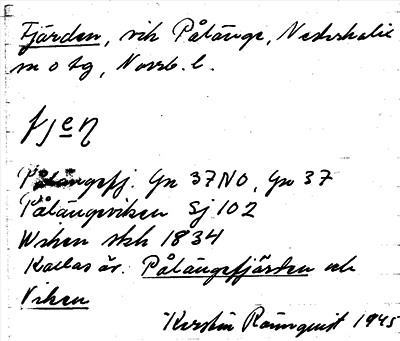 Fjärden, vik Pålänge, Nederkalix
sn o tg, Norrb. l.
fjen
Pålängefj. Gn 37 NO, Gn 37
Pålängviken Sj 102
Wiken skh 1834
Kallas äv. Pålängefjärden och
Viken
Kerstin Rönnquist 1945